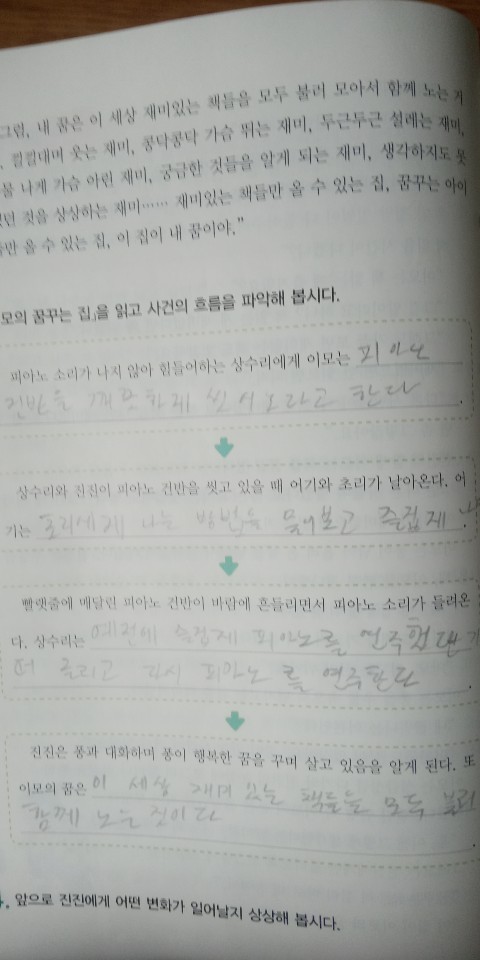 그럼, 내 꿈은 이 세상 재미있는 책들을 모두 불러 모아서 함께 노는 거
. 낄낄대며 웃는 재미, 콩닥콩닥 가슴 뛰는 재미, 두근두근 설레는 재미,
물 나게 가슴 아린 재미, 궁금한 것들을 알게 되는 재미, 생각하지도 못
던 것을 상상하는 재미…… 재미있는 책들만 올 수 있는 집, 꿈꾸는 아이
만 올 수 있는 집, 이 집이 내 꿈이야.”
모의 꿈꾸는 집」을 읽고 사건의 흐름을 파악해 봅시다.
피아노 소리가 나지 않아 힘들어하는 상수리에게 이모는 피아노
건반을 깨끗하게 씻어오라고 한다.
상수리와 진진이 피아노 건반을 씻고 있을 때 어기와 초리가 날아온다. 어
기는 초리에게 나는 방법을 물어보고 즐겁게
빨랫줄에 매달린 피아노 건반이 바람에 흔들리면서 피아노 소리가 들려온
다. 상수리는 예전에 즐겁게 피아노를 연주했던 기
다시 피아노를 연주한다.
진진은 퐁과 대화하며 퐁이 행복한 꿈을 꾸며 살고 있음을 알게 된다. 또
이모의 꿈은 이 세상 재미있는 책들을 모두 불러
함께 노는 것이다.
앞으로 진진에게 어떤 변화가 일어날지 상상해 봅시다.